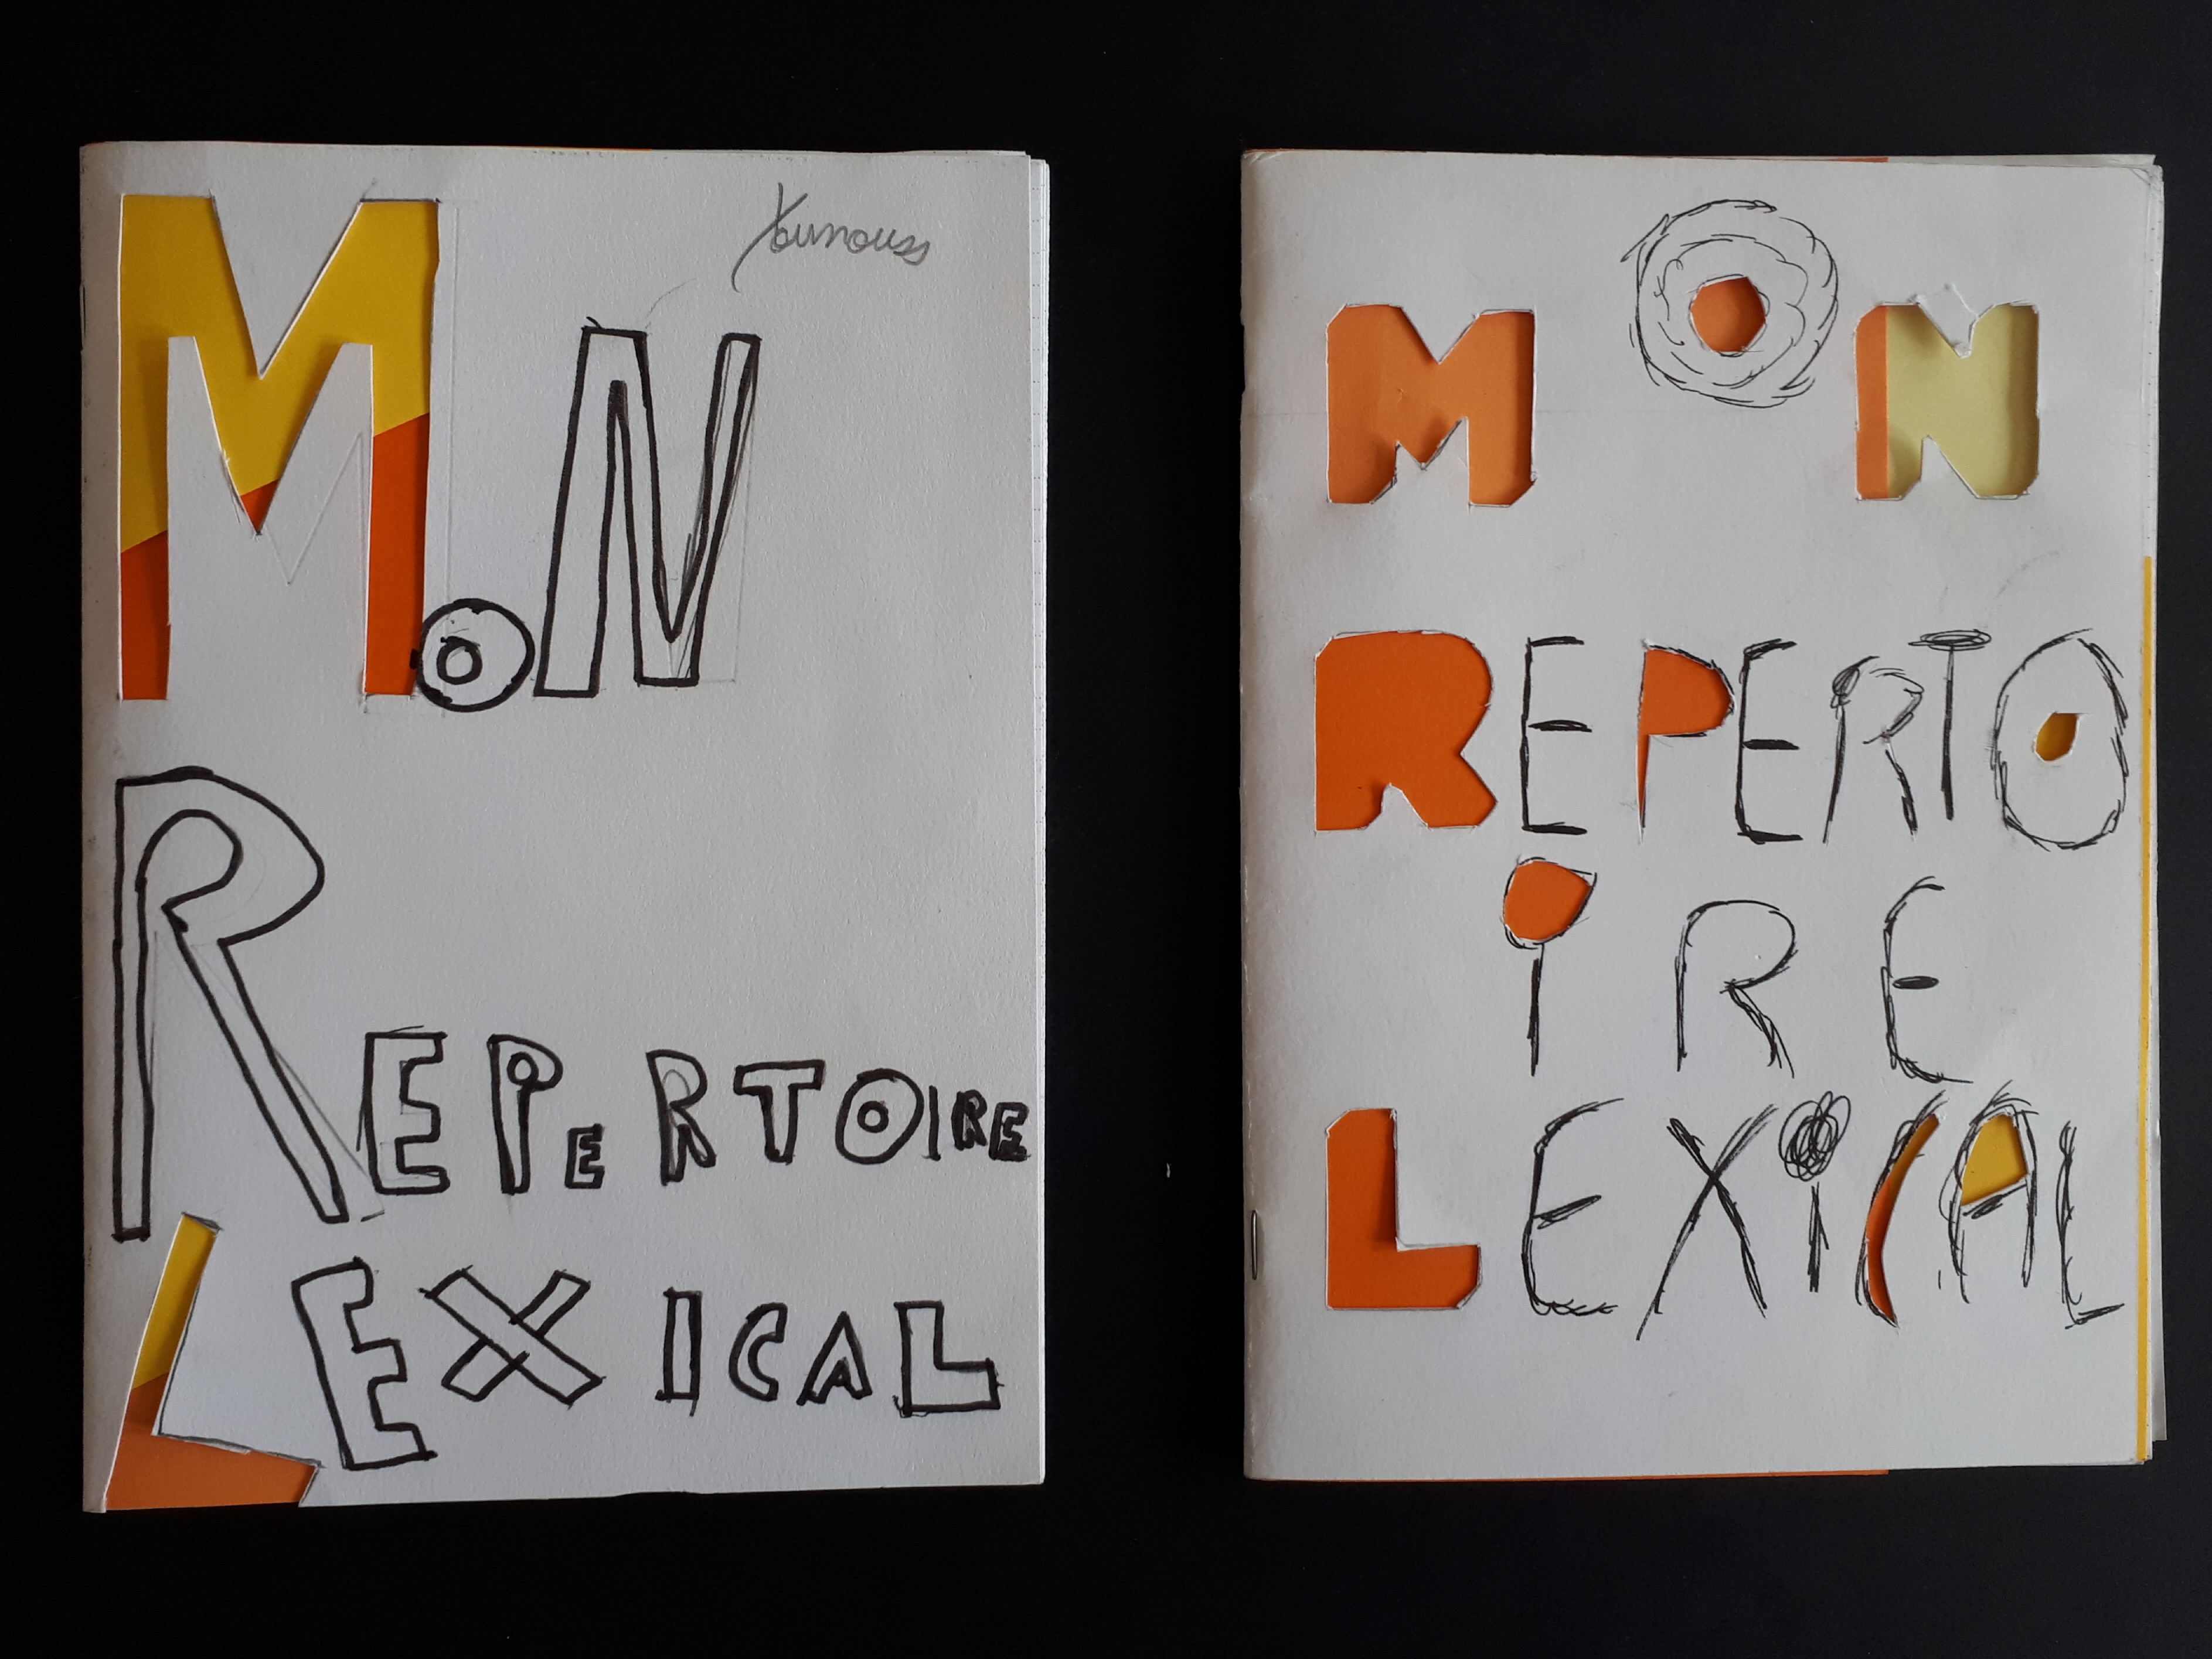 Younouss
MoN
REPERTOIRE
LEXICAL
MON
REPERTO
iRE
LEXiCAL